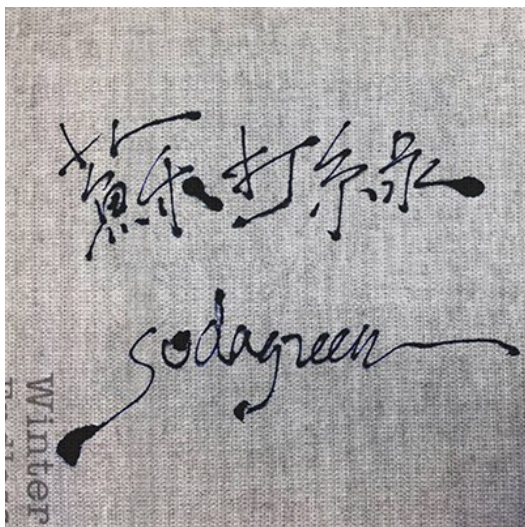 蘇打綠
sodagreen
Winter